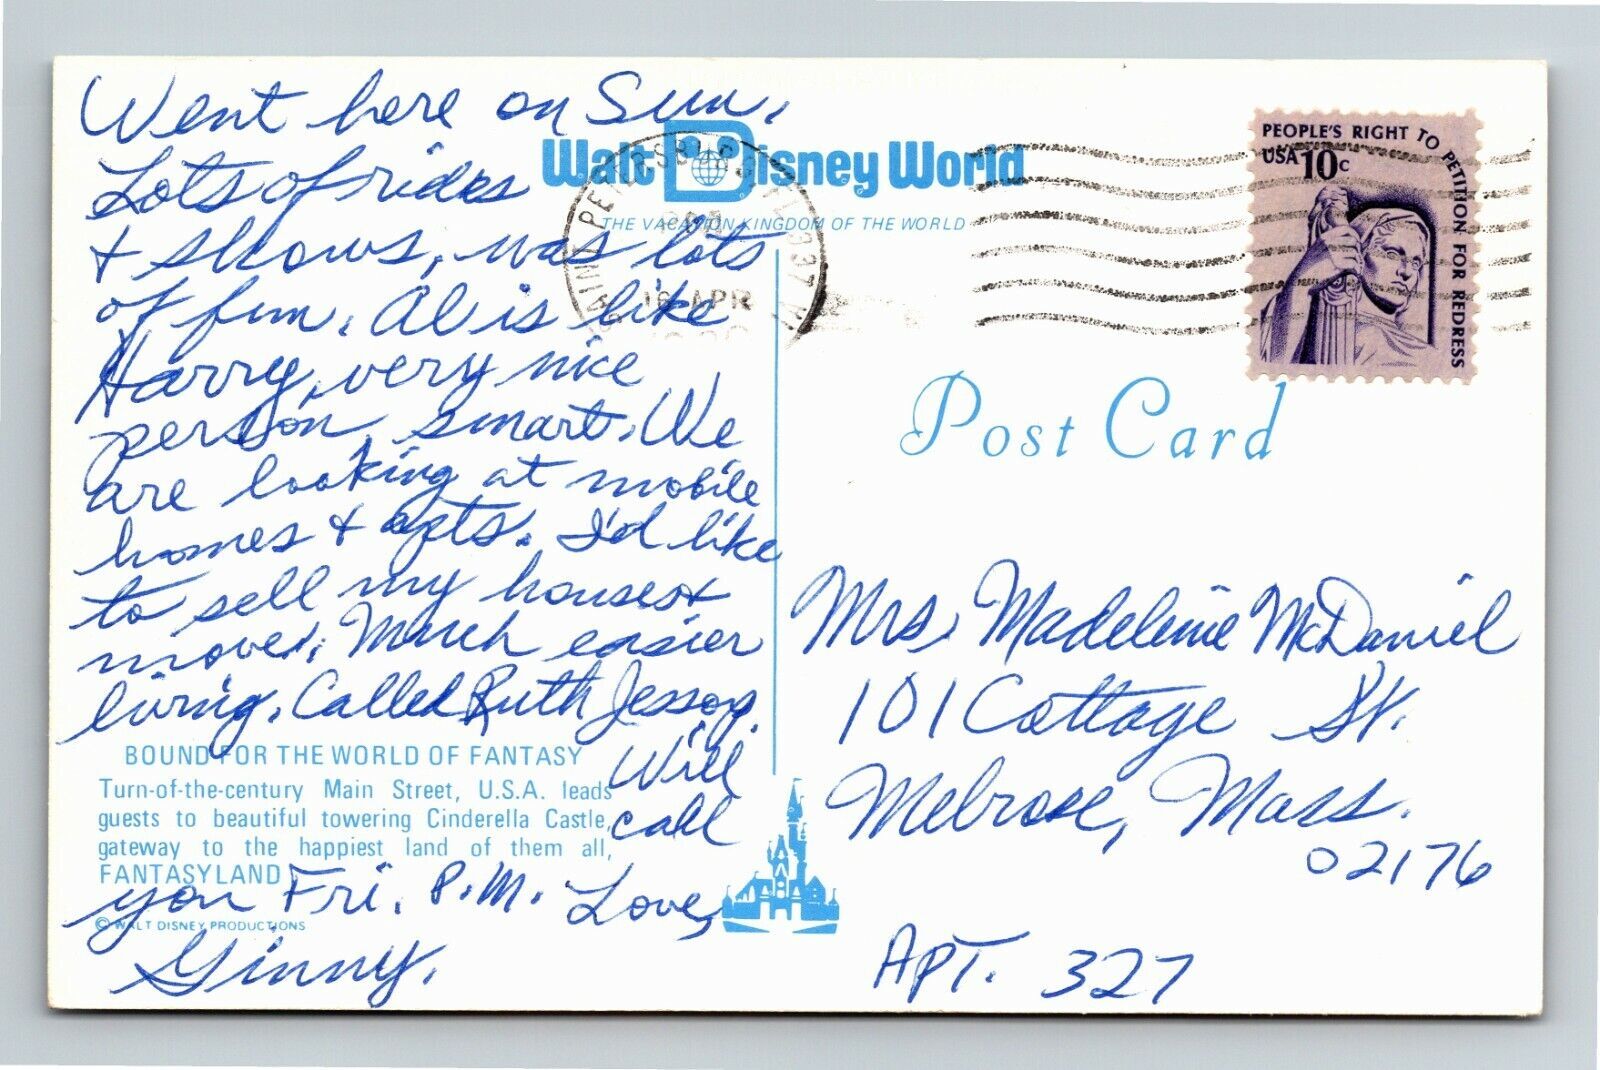 Went here on Sun.
Lots of rides
& shows, was lots
of fun. Al is like
Harry, very nice
person, smart. We
are looking at mobile
homes & apts. I'd like
to sell my house &
move. Much easier
living. Called Ruth Jessop.
Will
call
you Fri. P.M. Love,
Ginny.
BOUND FOR THE WORLD OF FANTASY
Turn-of-the-century Main Street, U.S.A. leads
guests to beautiful towering Cinderella Castle,
gateway to the happiest land of them all,
FANTASYLAND
© WALT DISNEY PRODUCTIONS
Walt Disney World
THE VACATION KINGDOM OF THE WORLD
SAINT PETERSBURG FL 337
PM
16 APR
PEOPLE'S RIGHT TO PETITION FOR REDRESS
USA 10c
Post Card
Mrs. Madeleine McDaniel
101 Cottage St.
Melrose, Mass.
02176
APT. 327